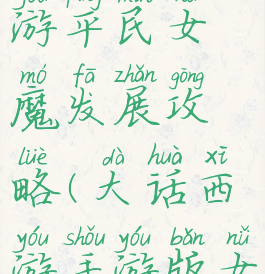 游平民女
mó fā zhǎn gōng
魔发展攻
lüè dà huà xī
略(大话西
yóu shǒu yóu bǎn nǚ
游手游版女